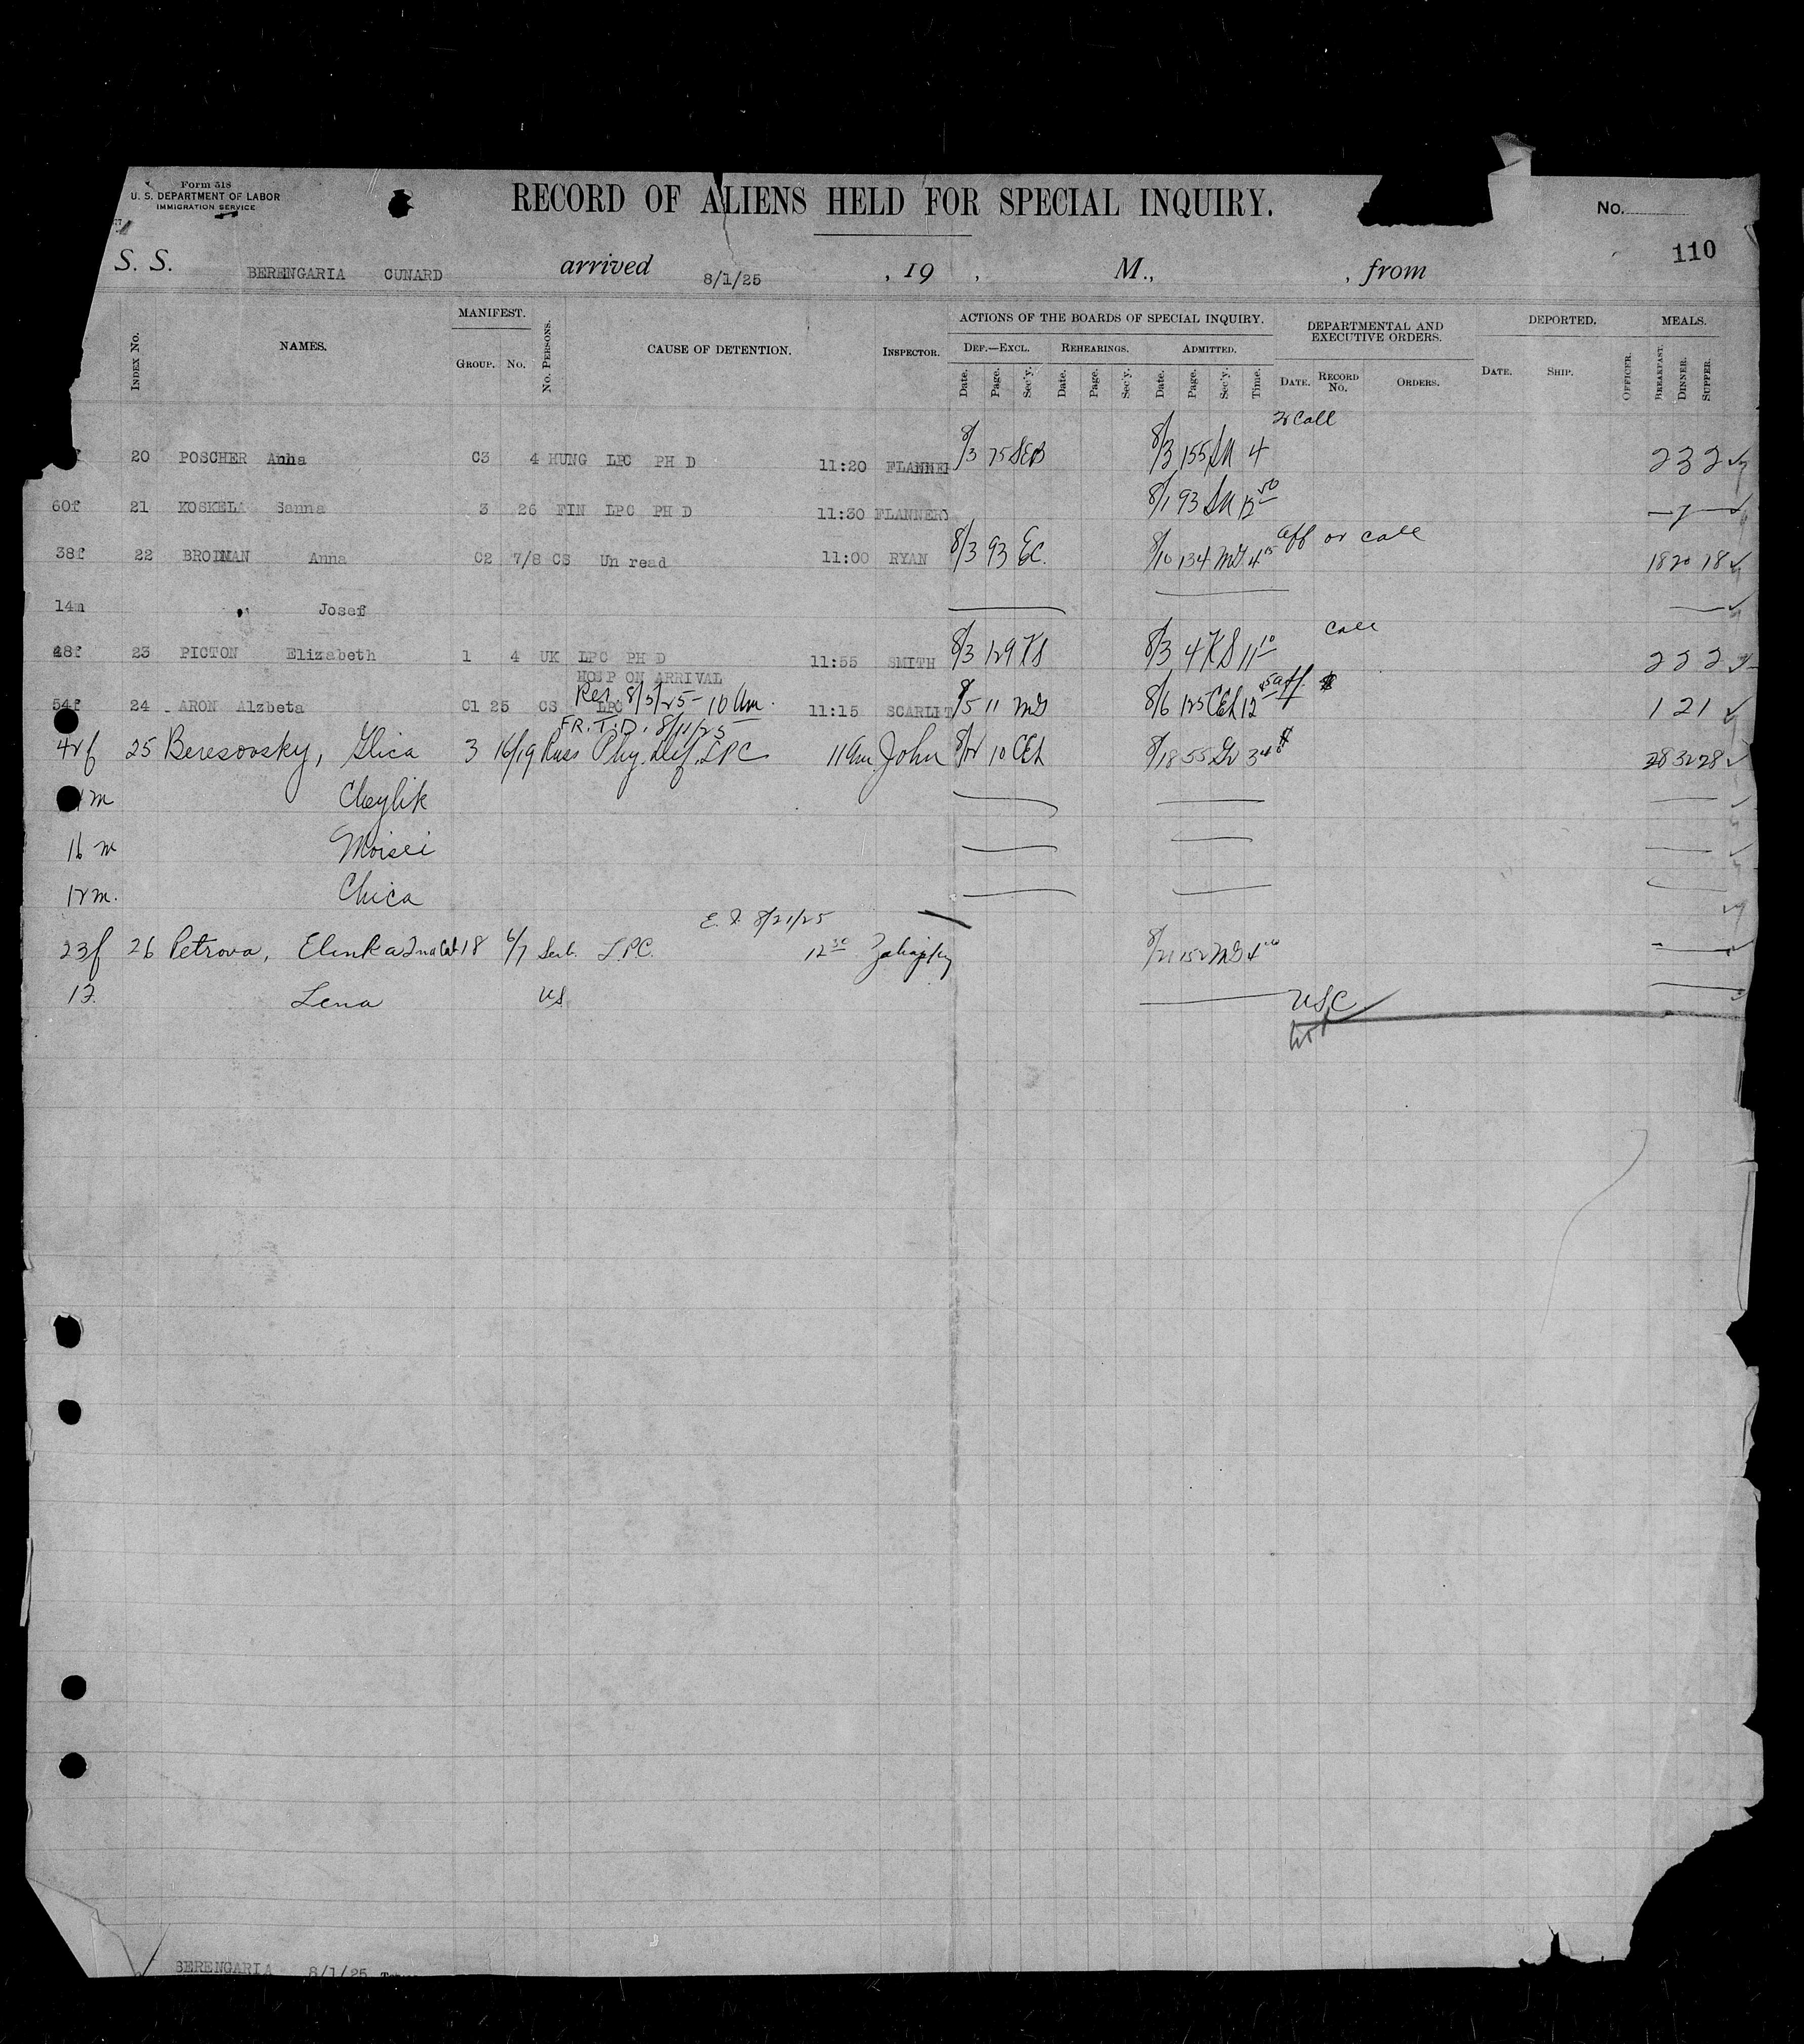 Form 518
U. S. DEPARTMENT OF LABOR
IMMIGRATION SERVICE
RECORD OF ALIENS HELD FOR SPECIAL INQUIRY.
No.
110
S. S. BERENGARIA CUNARD arrived 8/1/25 , 19 , M., , from
Index No. NAMES. MANIFEST. GROUP. No. No. PERSONS. CAUSE OF DETENTION. INSPECTOR. ACTIONS OF THE BOARDS OF SPECIAL INQUIRY. DEPARTMENTAL AND EXECUTIVE ORDERS. DEPORTED. MEALS.
DEF.—EXCL. REHEARINGS. ADMITTED.
Date. Page. Sec'y. Date. Page. Sec'y. Date. Page. Sec'y. Time. DATE. RECORD No. ORDERS. DATE. SHIP. OFFICER. BREAKFAST. DINNER. SUPPER.
call
20 POSCHER Anna C3 4 HUNG LPC PH D 11:20 FLANNER 8/3 75 SEB 8/3 155 4 2 3 2
60f 21 KOSKELA Sanna 3 26 FIN LPC PH D 11:30 FLANNERY 8/1 93
38f 22 BRODMAN Anna C2 7/8 CS Un read 11:00 RYAN 8/3 93 EC. 8/10 134 4 15 aff or call 18 20 18
14m " Josef
call
48f 23 PICTON Elizabeth 1 4 UK LPC PH D 11:55 SMITH 8/3 129 KS 8/3 4 KS 11 10 2 2 2
HOSP ON ARRIVAL
Rer. 8/5/25 - 10 am.
54f 24 ARON Alzbeta C1 25 CS LPC 11:15 SCARLIT 8/5 11 8/6 125 CEH 12 45 aff. 1 2 1
FR. T. D. 8/11/25
42f 25 Beresovsky, Glica 3 16/19 Russ Phy. Def. LPC 11 am John 8/12 10 CEH 8/18 55 3 28 32 28
m Cheylik
16 m Moisei
12 m. Chica
8/21/25
23f 26 Petrova, Elenka 2nd Cab 18 6/7 Serb. LPC. 12 30 8/21 152
1f. Lena US USC
BERENGARIA 8/1/25